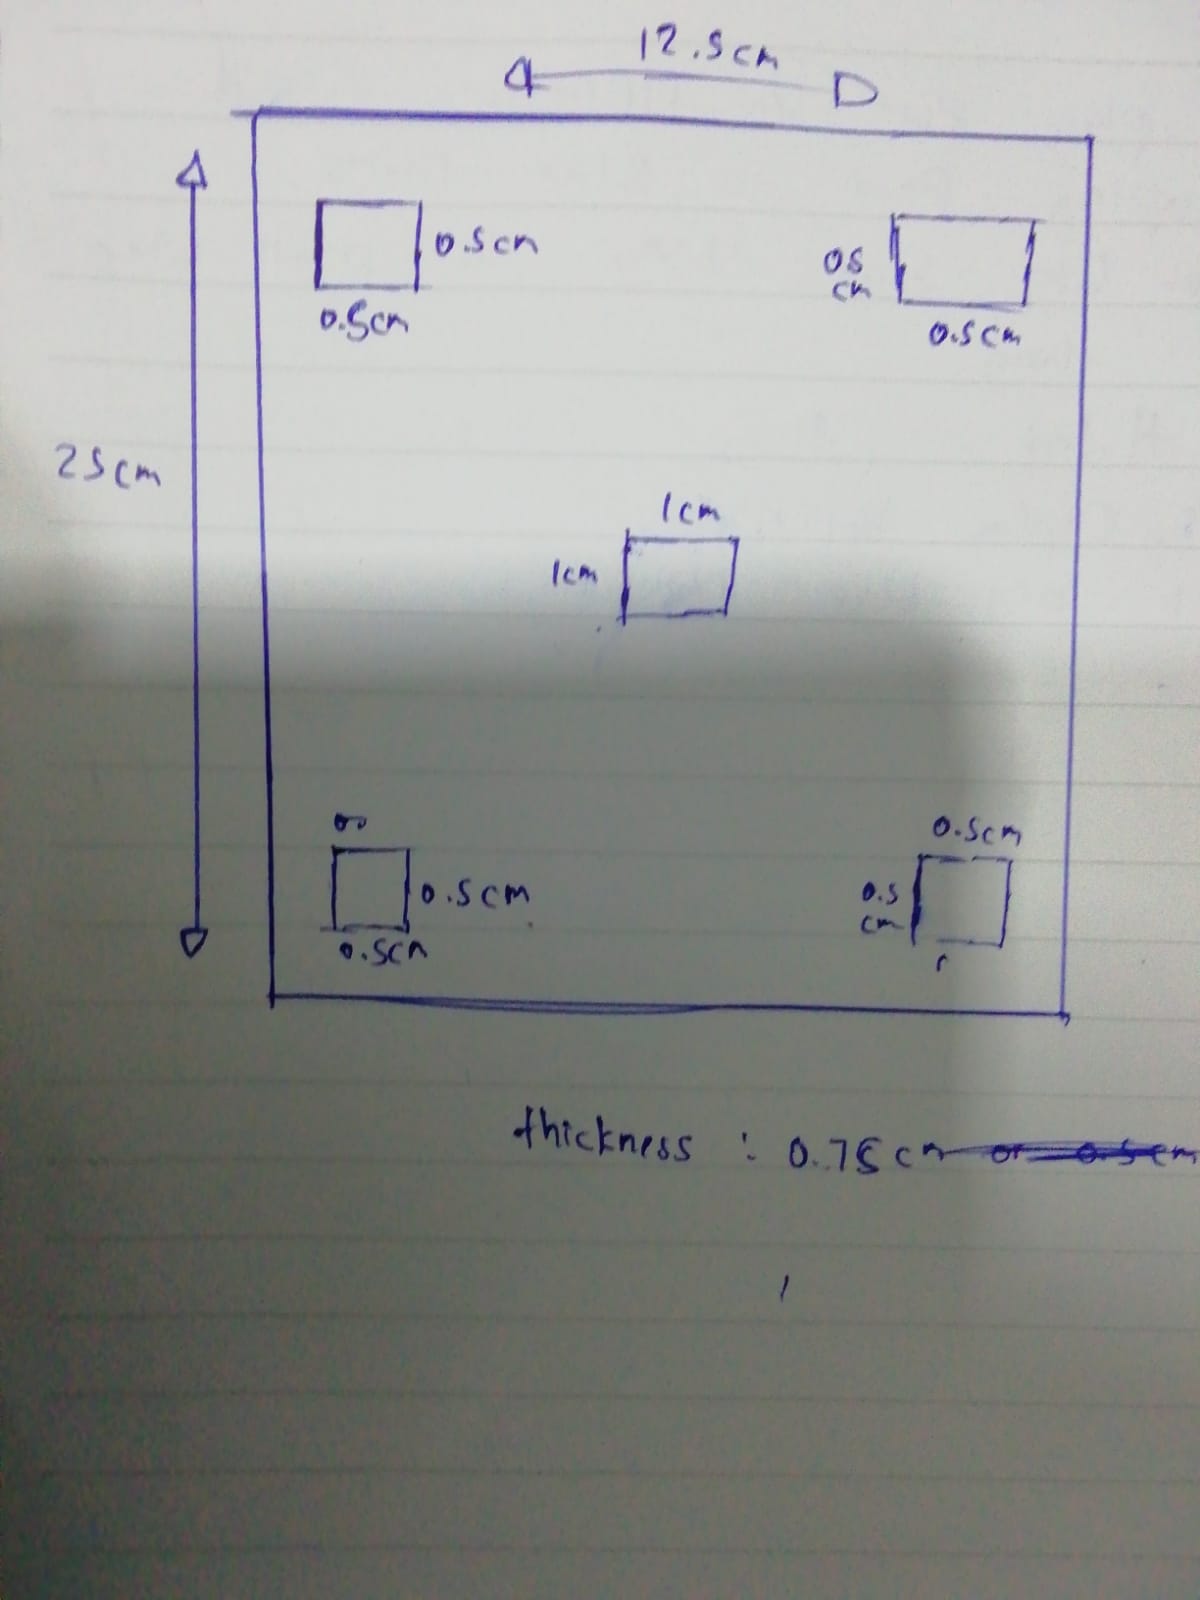 12.5cm
0.5cm
0.5cm
05
cm
0.5cm
25cm
1cm
1cm
0.5cm
0.5cm
0.5cm
0.5
cm
thickness : 0.75cm or 0.5cm